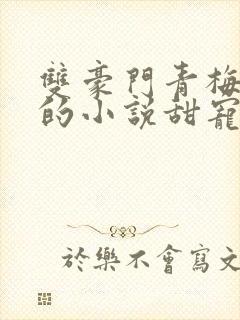 雙豪門青梅
的小說甜寵
於樂不會寫文